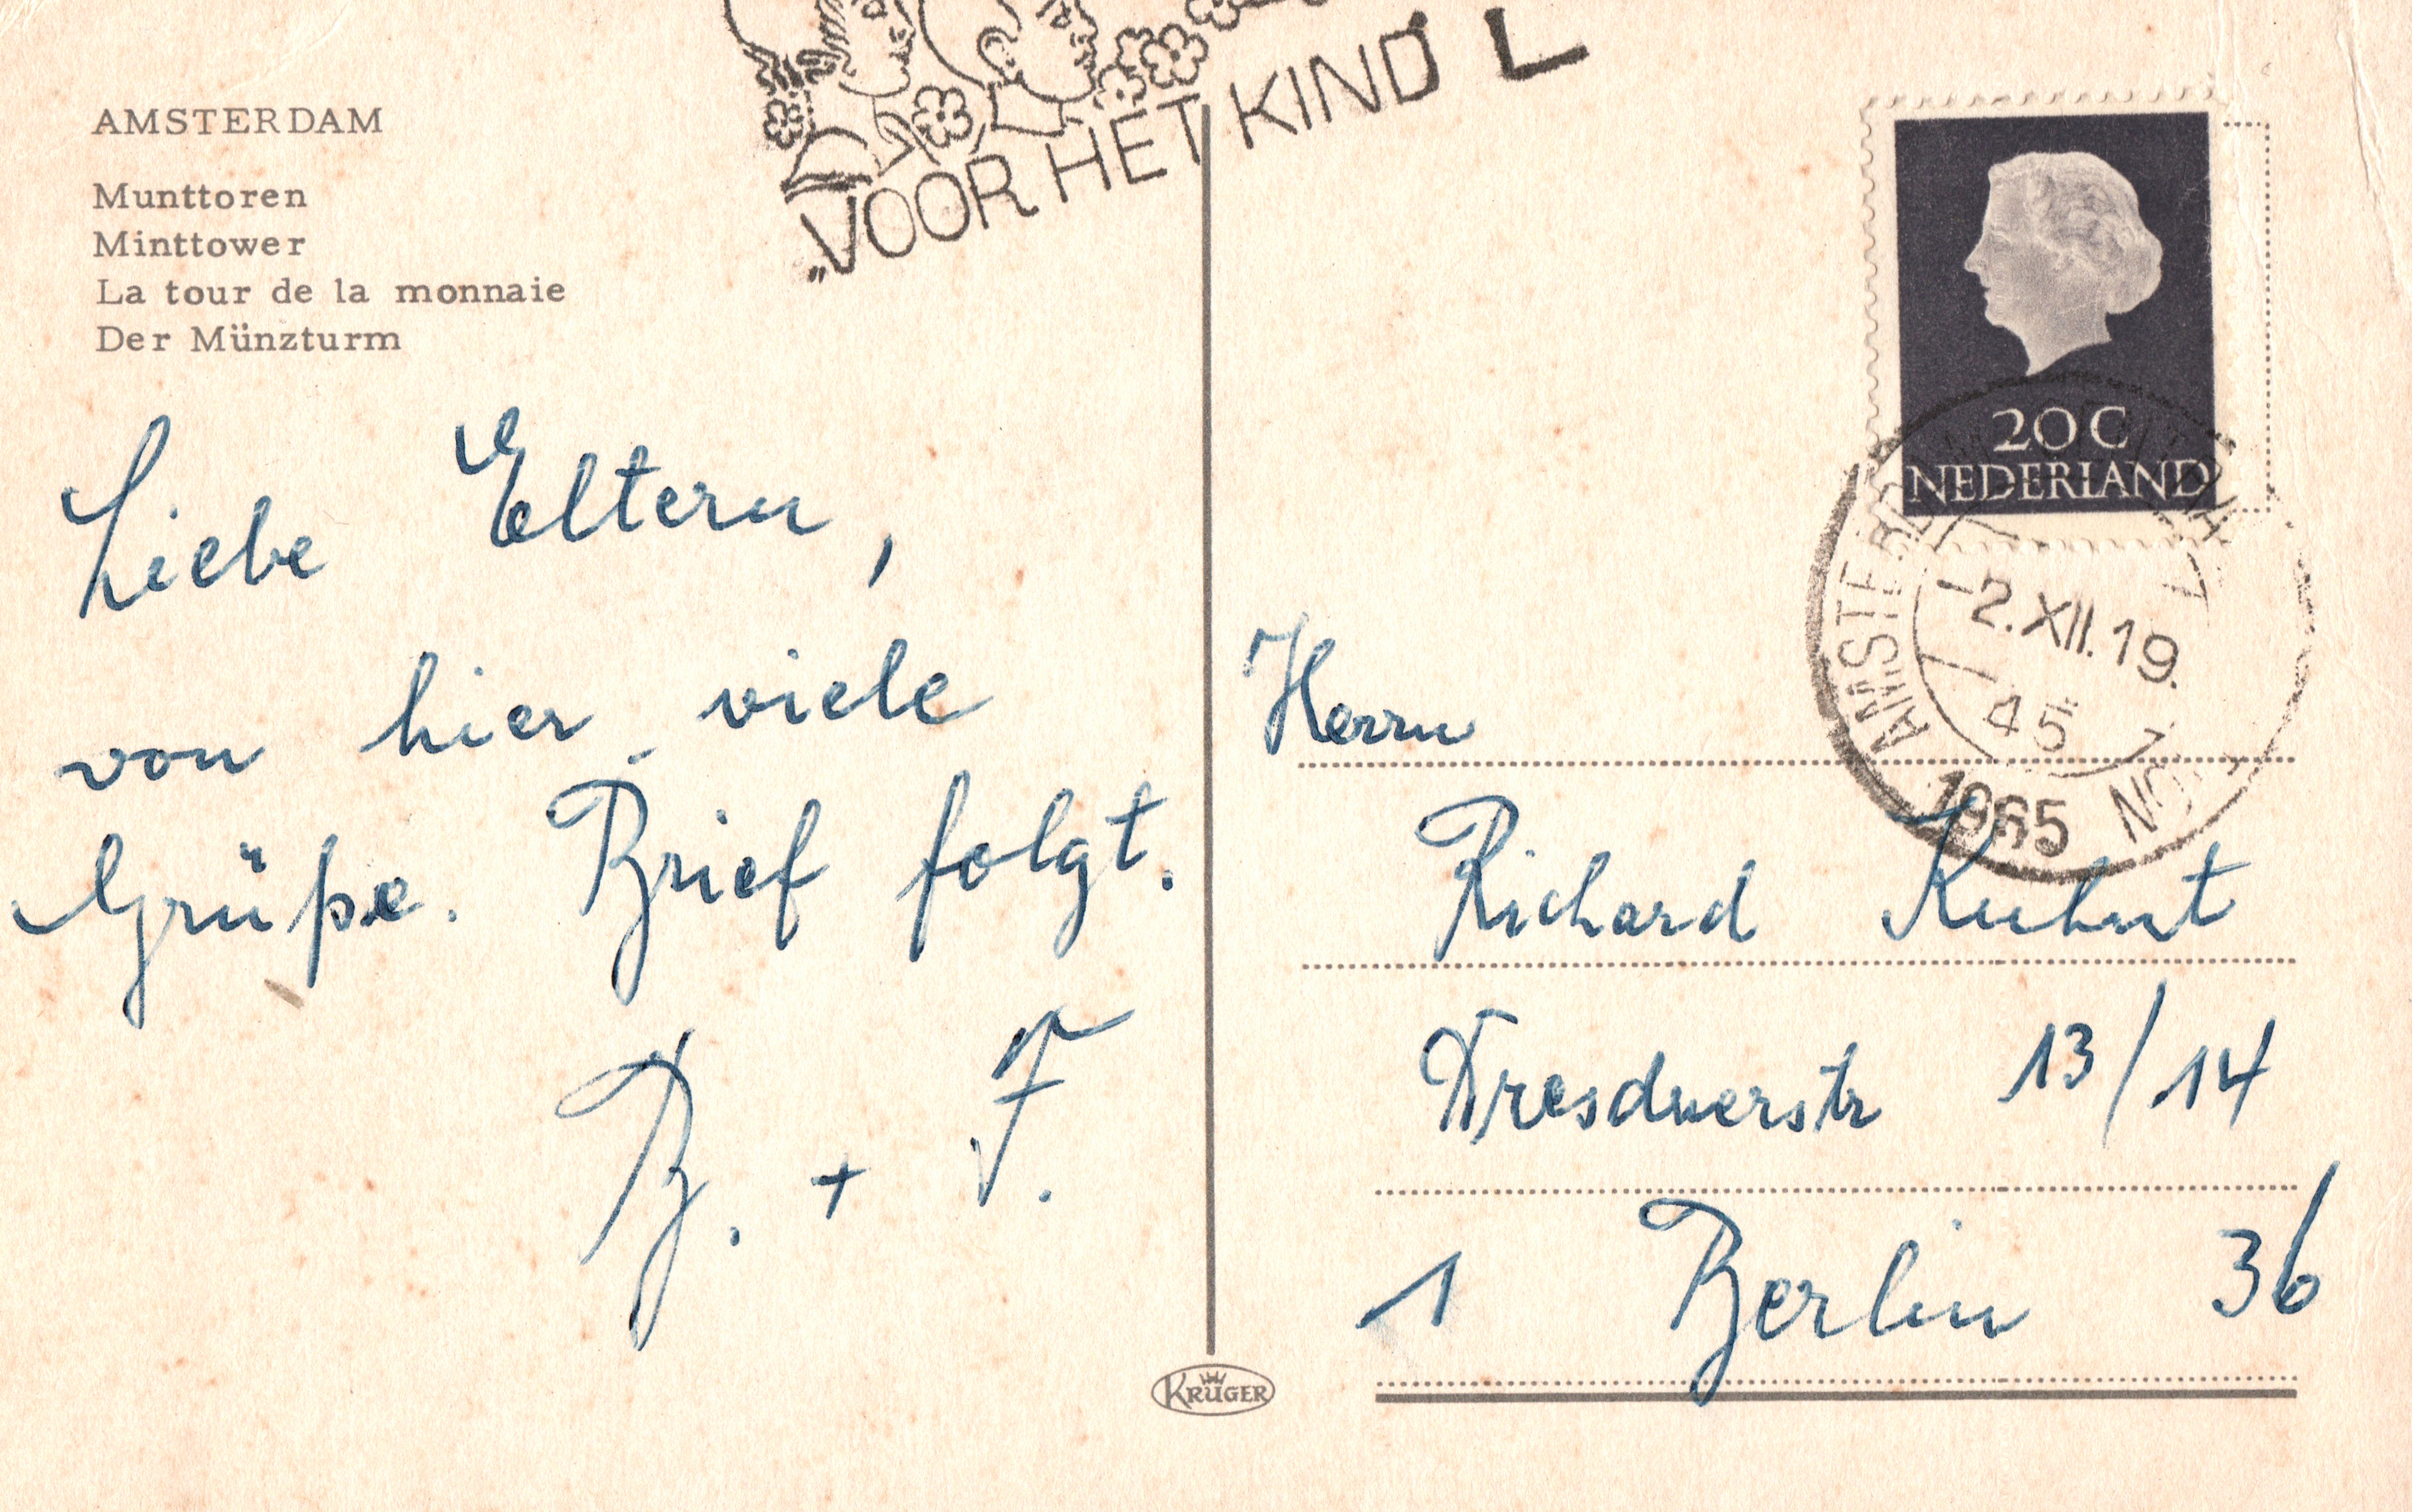 AMSTERDAM
Munttoren
Minttower
La tour de la monnaie
Der Münzturm
„VOOR HET KIND
Liebe Eltern,
von hier viele
Grüße. Brief folgt.
B. + F.
20 C
NEDERLAND
AMSTERDAM
-2.XII.19.
45
1965
Herrn
Richard Kuhnt
Dresdnerstr 13/14
1 Berlin 36
KRÜGER